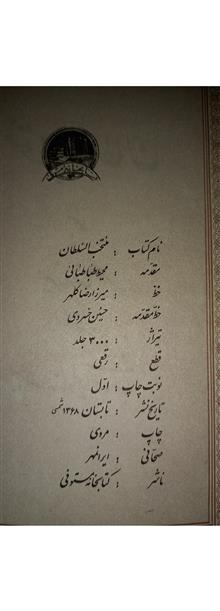 نام کتاب : منتخب السلطان
مقدمه : محیط طباطبائی
خط : میرزا رضا کلهر
خط مقدمه : حسین خسروی
تیراژ : ۳۰۰۰ جلد
قطع : رقعی
نوبت چاپ : اول
تاریخ نشر : تابستان ۱۳۶۸ شمسی
چاپ : مروی
صحافی : ایرانمهر
ناشر : کتابخانه مستوفی